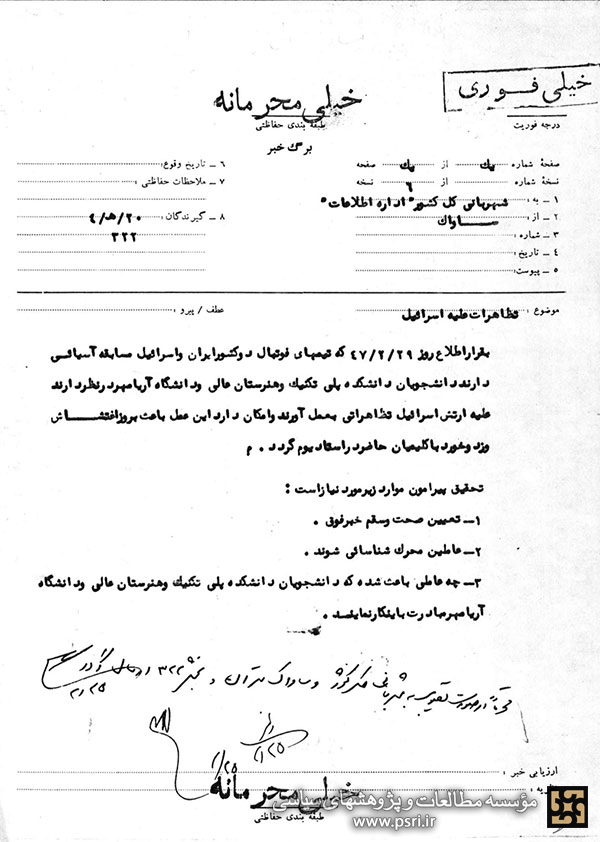 خیلی فوری
درجه فوریت
خیلی محرمانه
طبقه بندی حفاظتی
برگ خبر
صفحه شماره یک از یک صفحه
نسخه شماره از ۶ نسخه
۱ ـ به : شهربانی کل کشور "اداره اطلاعات"
۲ ـ از : ساواک
۳ ـ شماره :
۴ ـ تاریخ :
۵ ـ پیوست :
۶ ـ تاریخ وقوع :
۷ ـ ملاحظات حفاظتی :
۸ ـ گیرندگان : ۲۰/هـ/۴
۳۲۲
موضوع : تظاهرات علیه اسرائیل
عطف / پیرو :
بقرار اطلاع روز ۴۷/۲/۲۹ که تیمهای فوتبال دو کشور ایران و اسرائیل مسابقه آسیائی
دارند دانشجویان دانشکده پلی تکنیک و هنرستان عالی و دانشگاه آریامهر در نظر دارند
علیه ارتش اسرائیل تظاهراتی بعمل آورند و امکان دارد این عمل باعث بروز اغتشـــاش
و زد و خورد با کلیمیان حاضر در استادیوم گردد . م
تحقیق پیرامون موارد زیر مورد نیاز است :
۱ـ تعیین صحت و سقم خبر فوق .
۲ـ عاملین محرک شناسائی شوند .
۳ـ چه عاملی باعث شده که دانشجویان دانشکده پلی تکنیک و هنرستان عالی و دانشگاه
آریامهر مبادرت باینکار نمایند .
به شهربانی کل کشور و ساواک تهران و بخش ۳۲۲
۲/۲۵
۲/۲۵
۲/۲۵
ارزیابی خبر :
خیلی محرمانه
طبقه بندی حفاظتی
مؤسسه مطالعات و پژوهشهای سیاسی
www.psri.ir